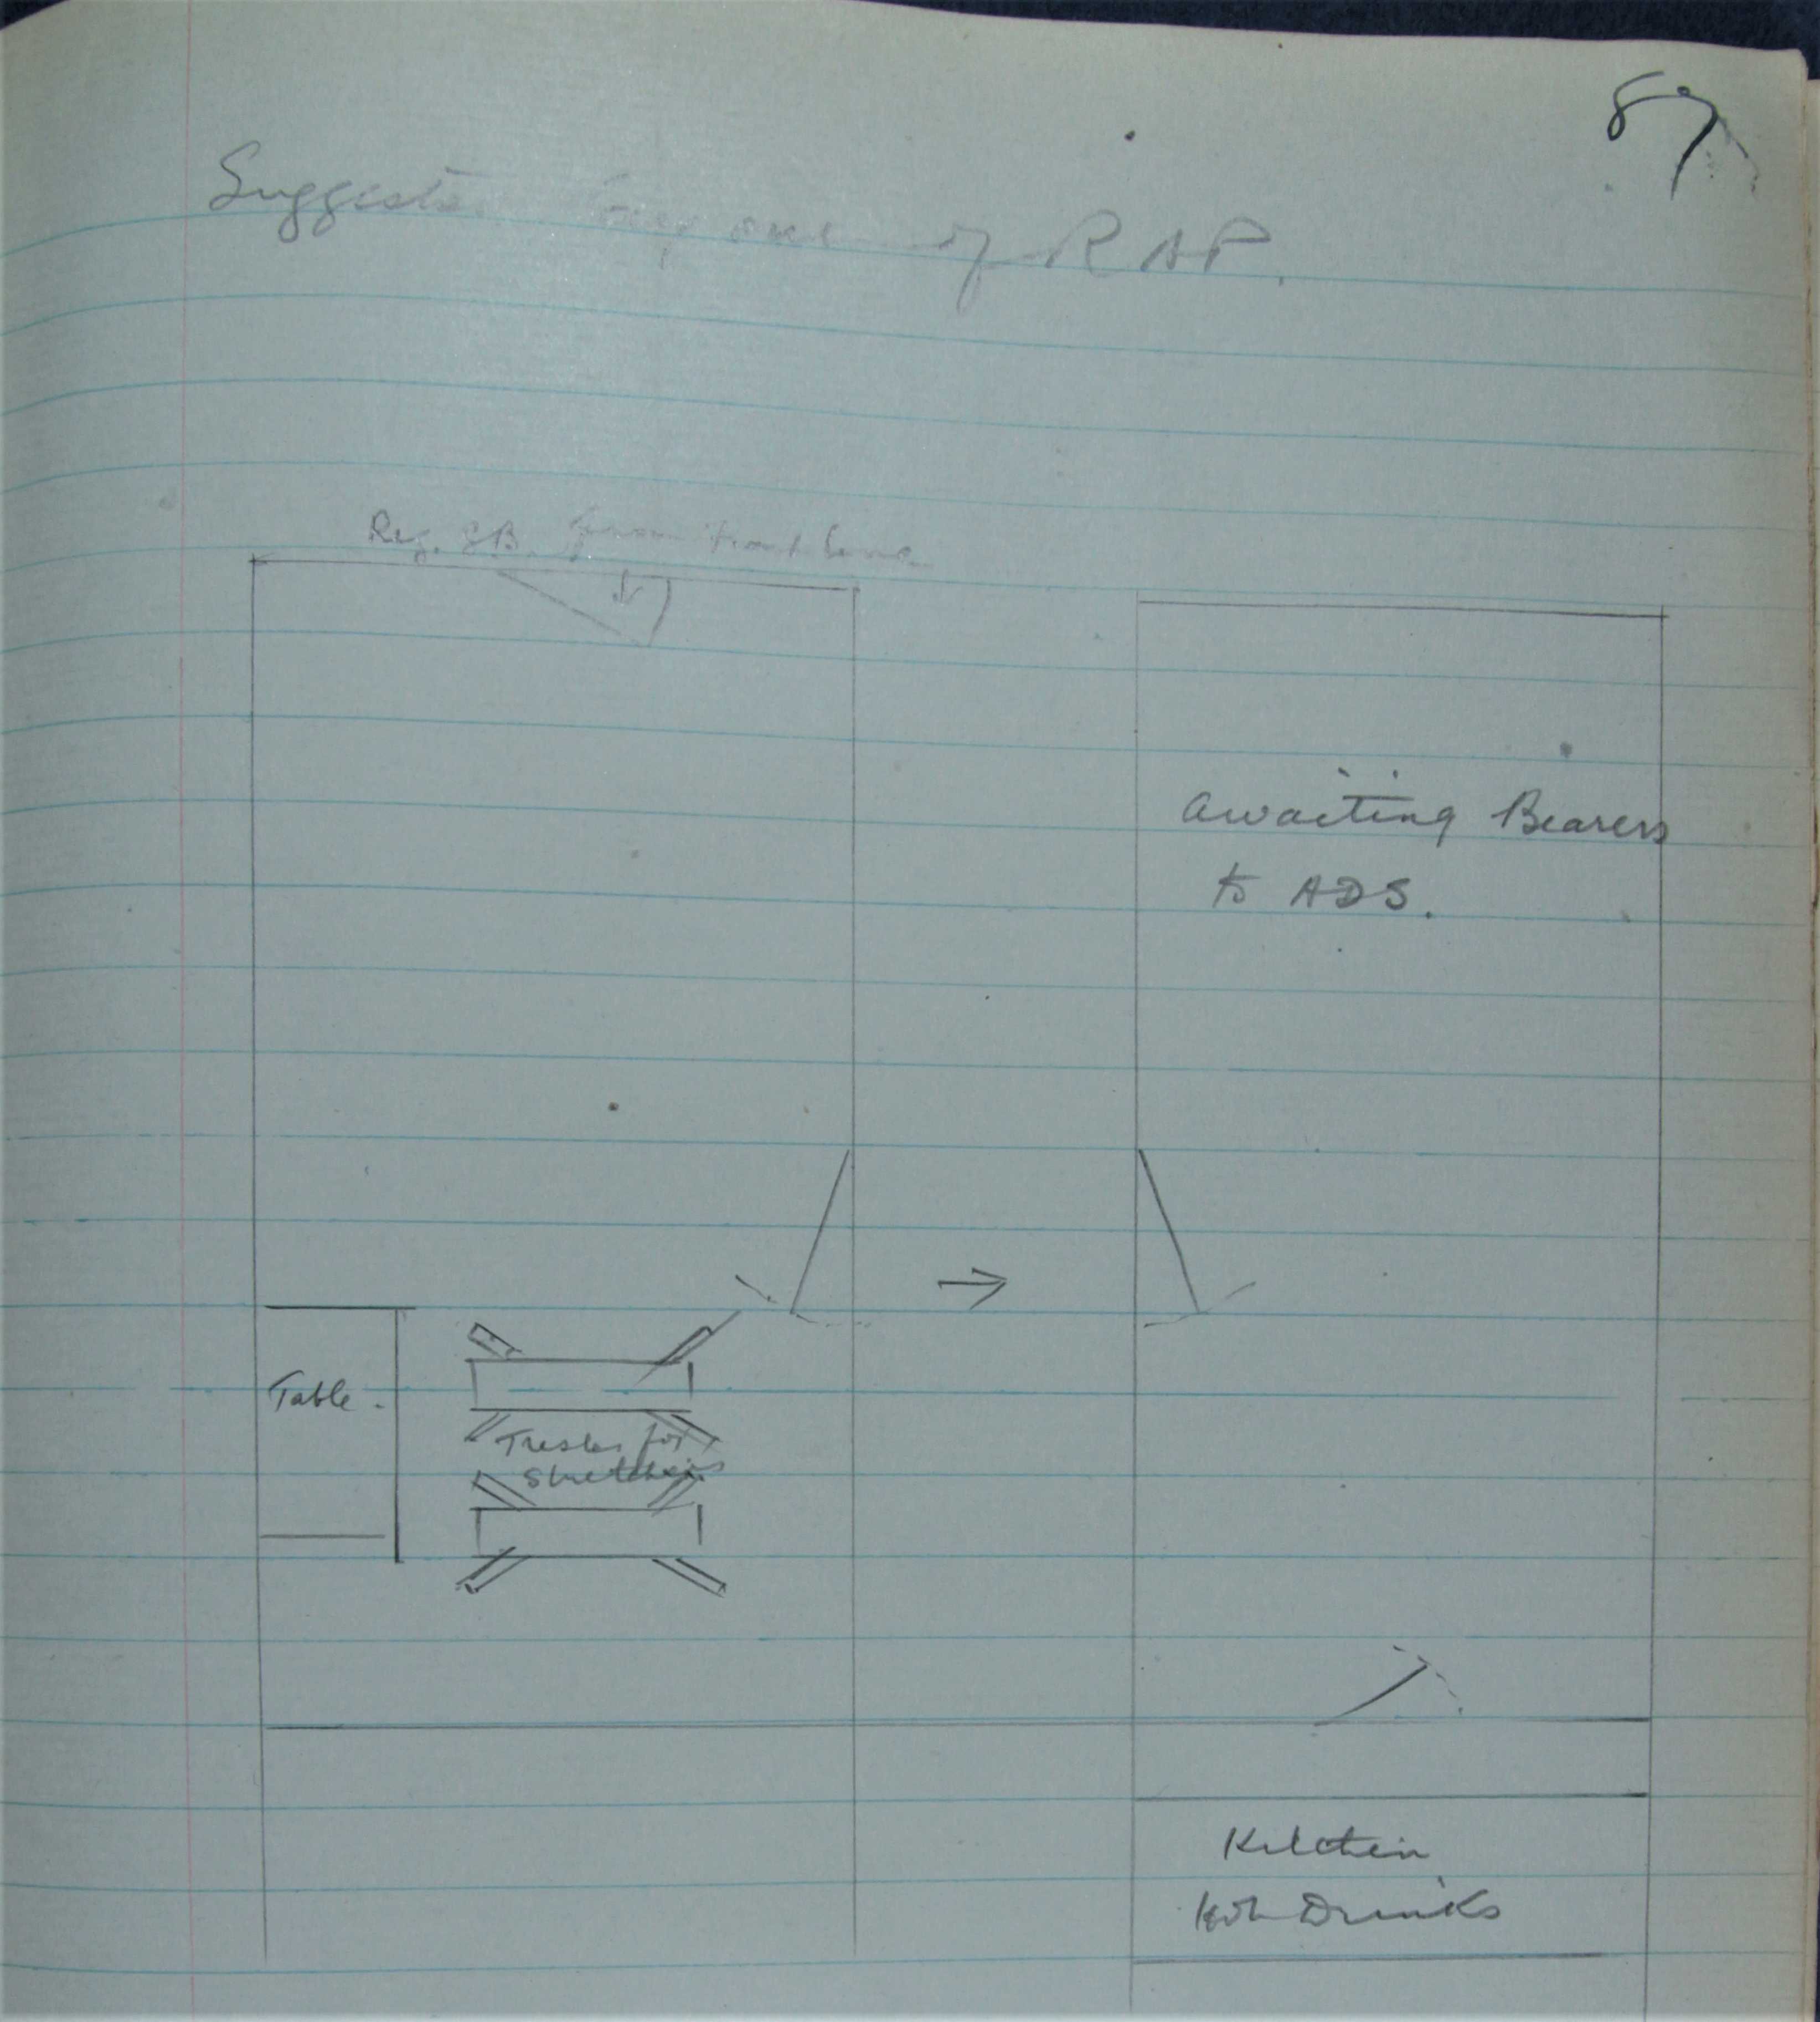 87
Suggested lay out of RAP.
Reg. SB. from front line
Awaiting Bearers
to ADS.
Table.
Trestles for
Stretchers
Kitchen
Hot Drinks